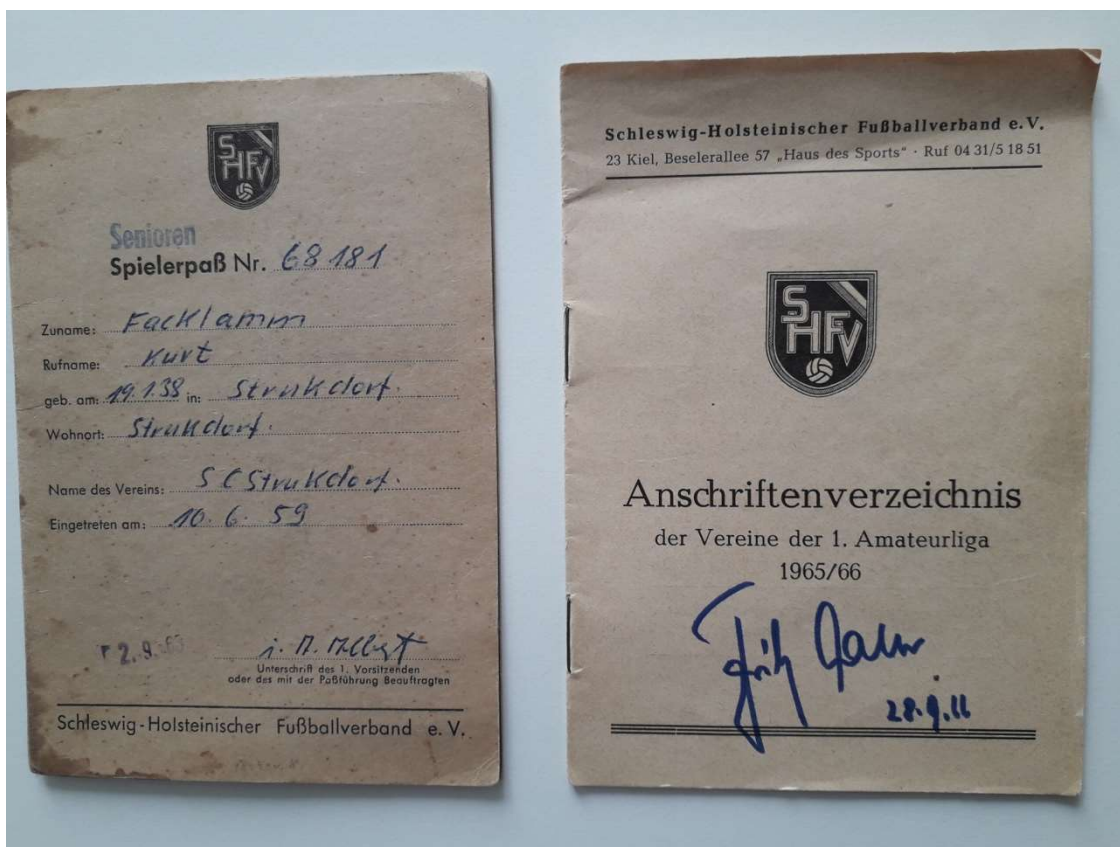 SHFV
Senioren
Spielerpaß Nr. 68181
Zuname: Facklamm
Rufname: Kurt
geb. am: 19.1.38 in: Strukdorf.
Wohnort: Strukdorf.
Name des Vereins: SC Strukdorf.
Eingetreten am: 10.6.59
2.9.
Unterschrift des 1. Vorsitzenden
oder des mit der Paßführung Beauftragten
Schleswig-Holsteinischer Fußballverband e. V.
Schleswig-Holsteinischer Fußballverband e. V.
23 Kiel, Beselerallee 57 „Haus des Sports" · Ruf 04 31/5 18 51
SHFV
Anschriftenverzeichnis
der Vereine der 1. Amateurliga
1965/66
Fritz
28.9.